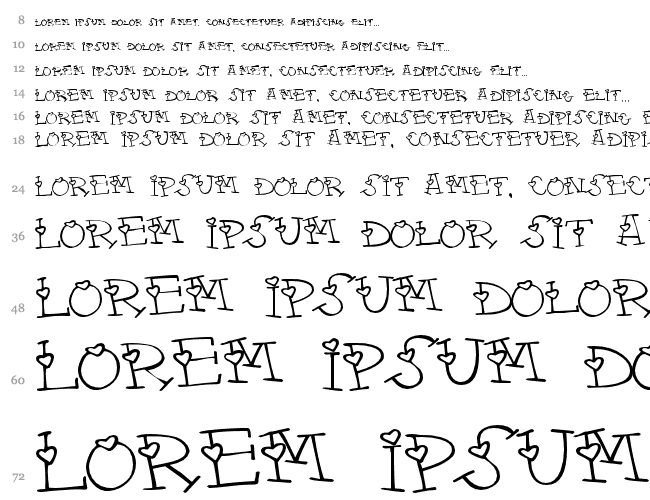 8 LOREM IPSUM DOLOR SIT AMET, CONSECTETUER ADIPISCING ELIT...
10 LOREM IPSUM DOLOR SIT AMET, CONSECTETUER ADIPISCING ELIT...
12 LOREM IPSUM DOLOR SIT AMET, CONSECTETUER ADIPISCING ELIT...
14 LOREM IPSUM DOLOR SIT AMET, CONSECTETUER ADIPISCING ELIT...
16 LOREM IPSUM DOLOR SIT AMET, CONSECTETUER ADIPISCING E
18 LOREM IPSUM DOLOR SIT AMET, CONSECTETUER ADIPI
24 LOREM IPSUM DOLOR SIT AMET, CONSECT
36 LOREM IPSUM DOLOR SIT A
48 LOREM IPSUM DOLOR
60 LOREM IPSUM DO
72 LOREM IPSUM